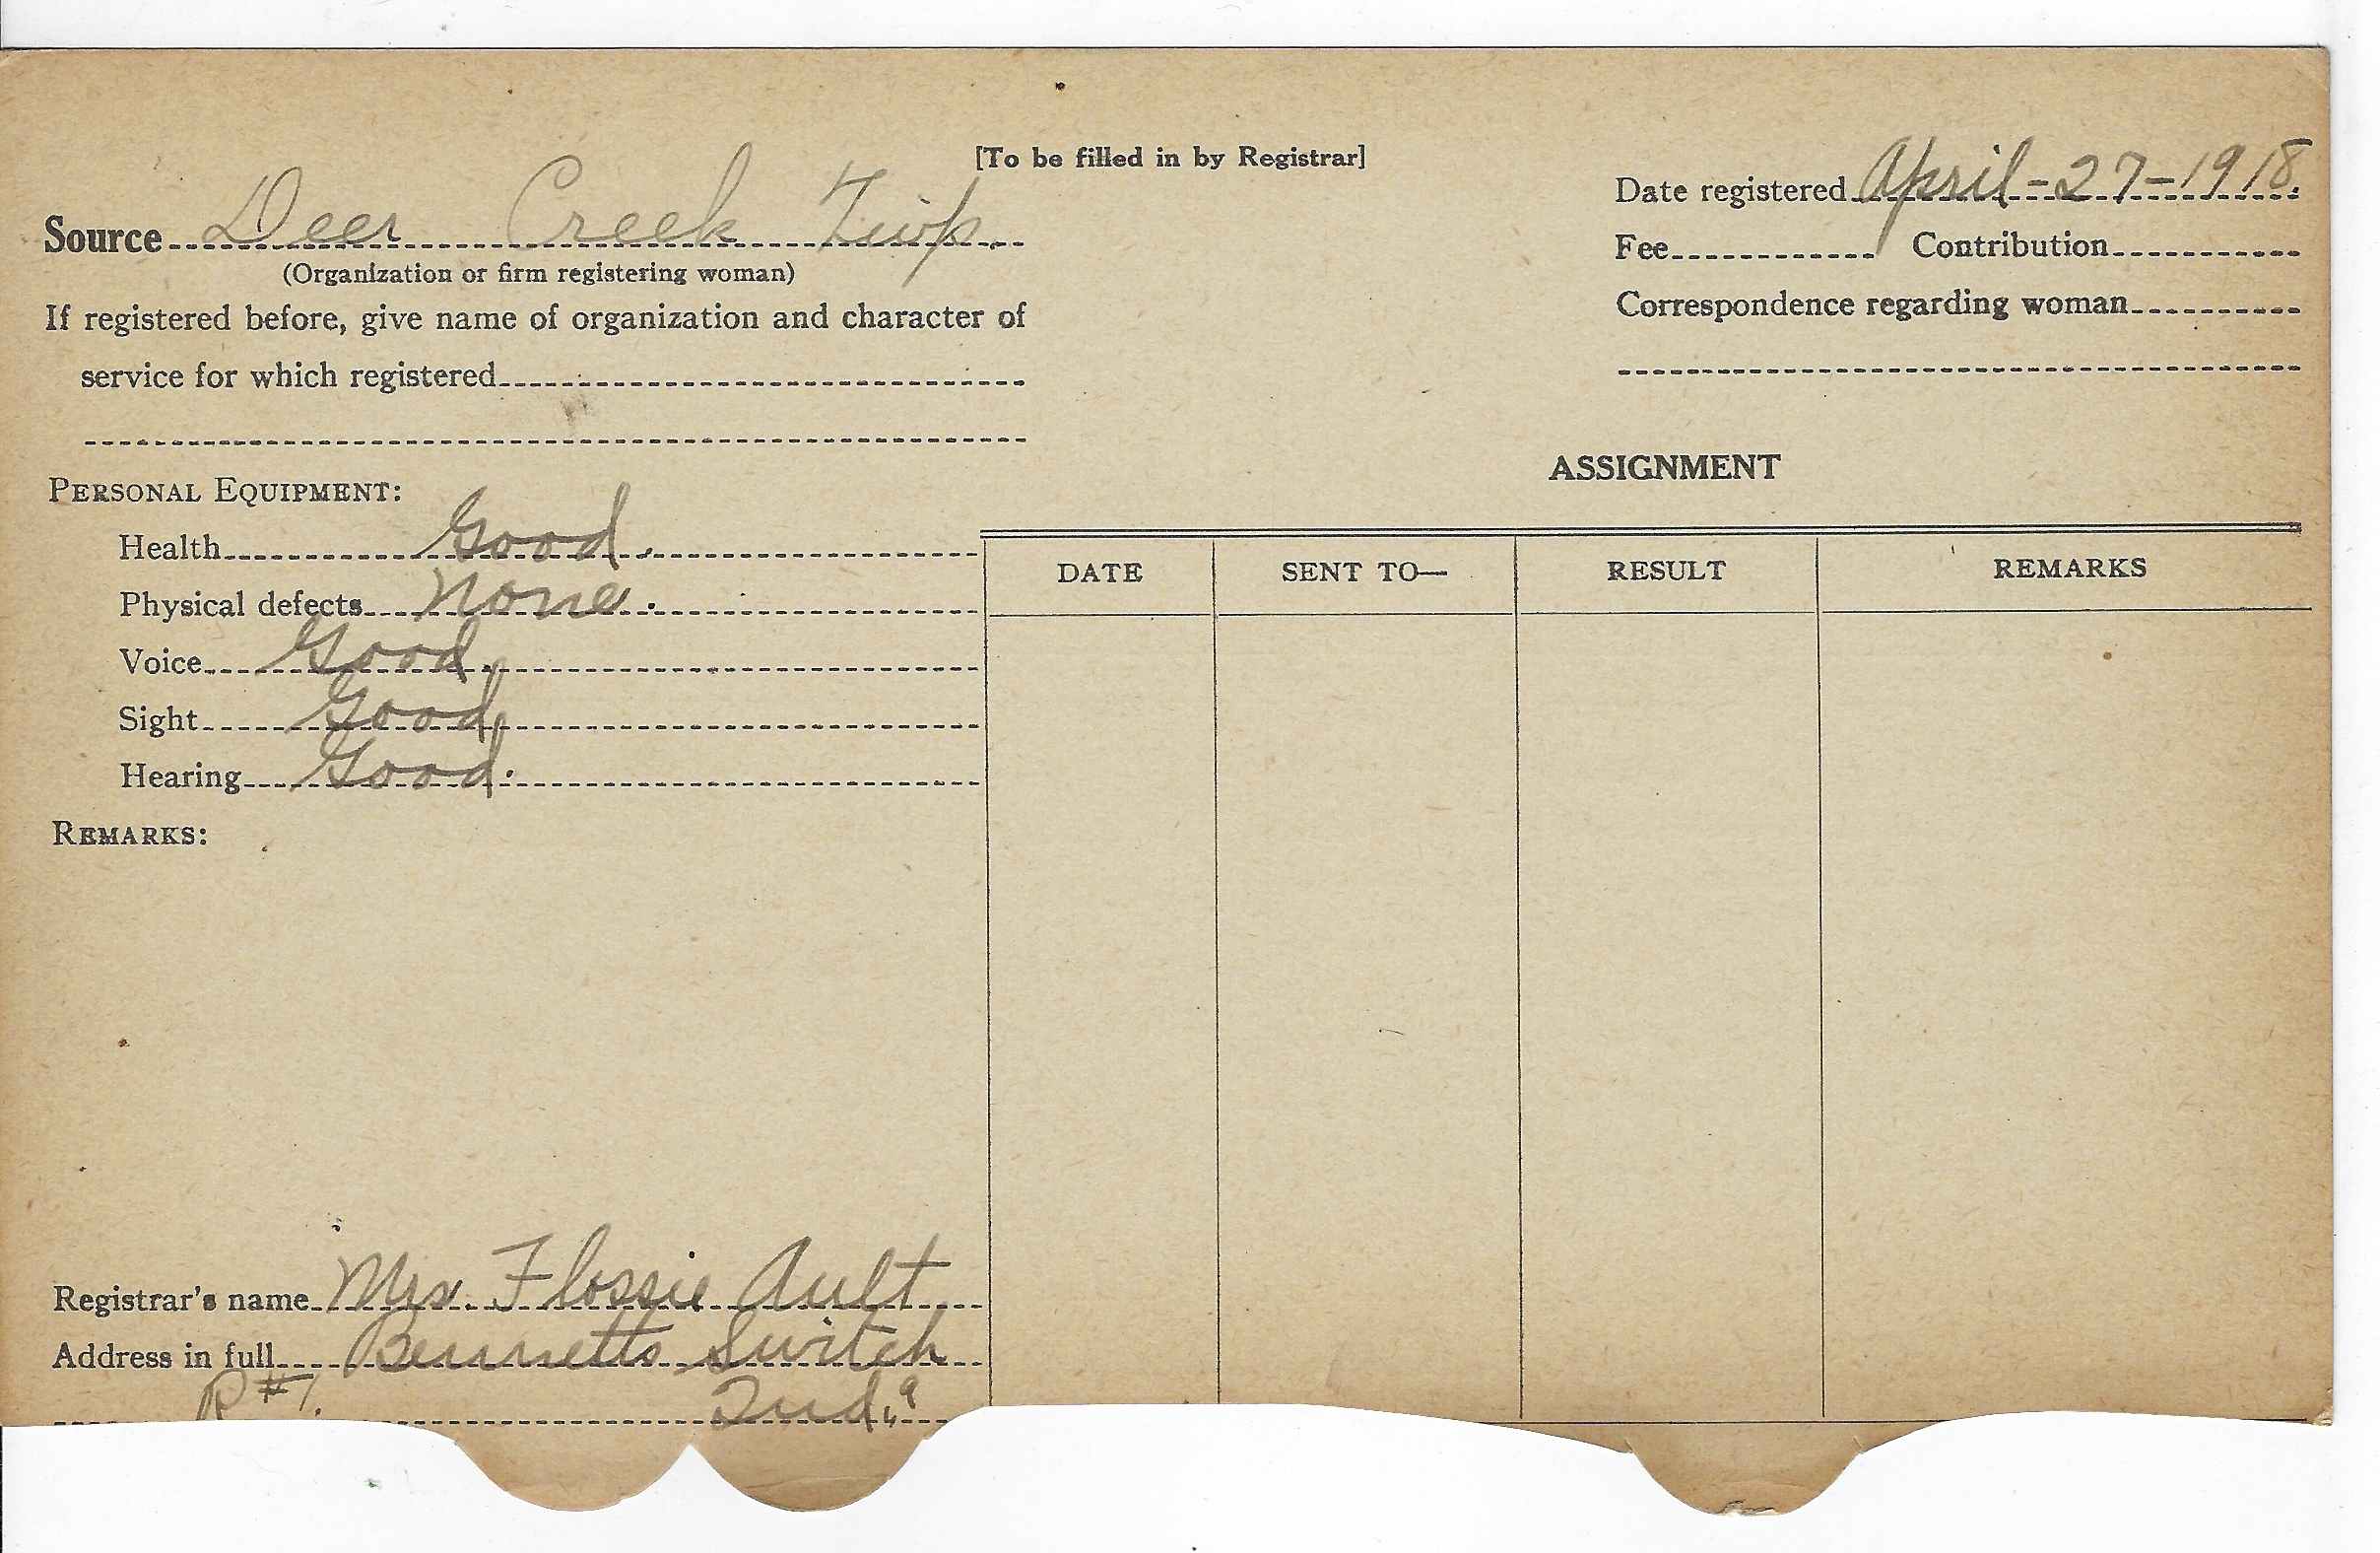 [To be filled in by Registrar]
Source Deer Creek Twp.
(Organization or firm registering woman)
If registered before, give name of organization and character of
service for which registered
PERSONAL EQUIPMENT:
Health Good.
Physical defects None.
Voice Good.
Sight Good
Hearing Good.
REMARKS:
Registrar's name Mrs. Flossie Ault
Address in full Bennetts Switch
R#1. Ind."
Date registered April-27-1918.
Fee Contribution
Correspondence regarding woman
ASSIGNMENT
DATE SENT TO— RESULT REMARKS